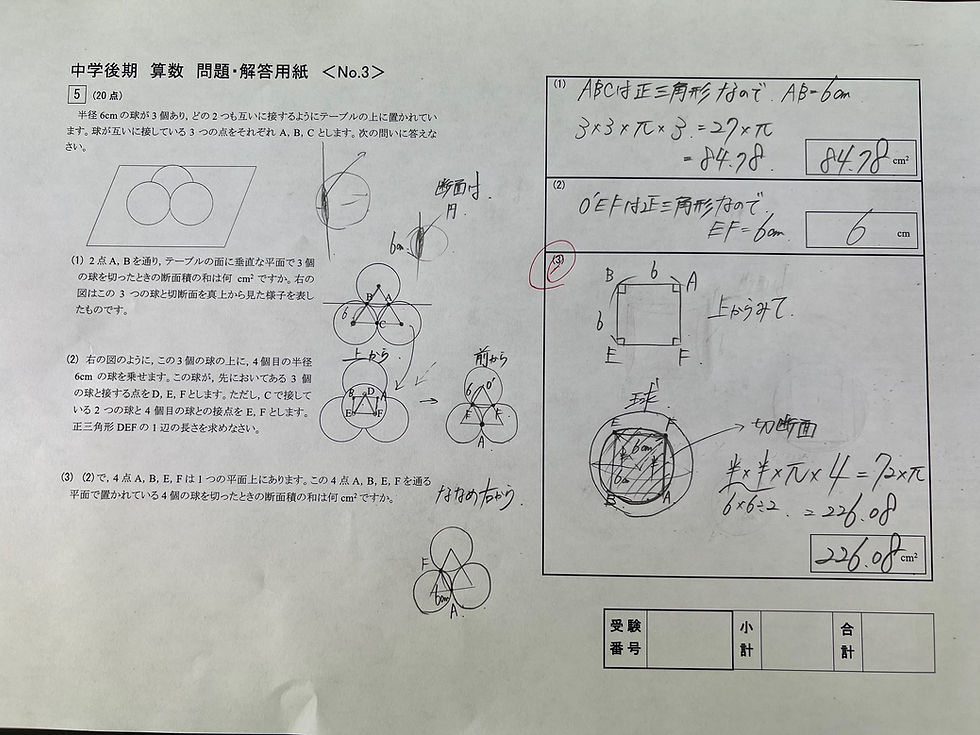 中学後期 算数 問題・解答用紙 <No.3>
5 (20点)
半径6cmの球が3個あり，どの2つも互いに接するようにテーブルの上に置かれてい
ます。球が互いに接している3つの点をそれぞれA, B, Cとします。次の問いに答えな
さい。
断面は
円.
6cm
(1) 2点A, Bを通り，テーブルの面に垂直な平面で3個
の球を切ったときの断面積の和は何cm²ですか。右の
図はこの3つの球と切断面を真上から見た様子を表し
たものです。
B A
6
C
(2) 右の図のように，この3個の球の上に，4個目の半径
6cmの球を乗せます。この球が，先においてある3個
の球と接する点をD, E, Fとします。ただし，Cで接して
いる2つの球と4個目の球との接点をE, Fとします。
正三角形DEFの1辺の長さを求めなさい。
上から
B D A
E F
前から
6 O'
E F
A
(3) (2)で，4点A, B, E, Fは1つの平面上にあります。この4点A, B, E, Fを通る
平面で置かれている4個の球を切ったときの断面積の和は何cm²ですか。
ななめ右から
F
6cm
A
(1)
ABCは正三角形なので AB=6cm
3×3×π×3=27×π
=84.78
84.78 cm²
(2)
O'EFは正三角形なので
EF=6cm
6 cm
(3)
B 6 A
6
E F
上からみて
球
E F
6cm
B A
切断面
半×半×π×4=72×π
6×6÷2
=226.08
226.08 cm²
受験
番号
小
計
合
計